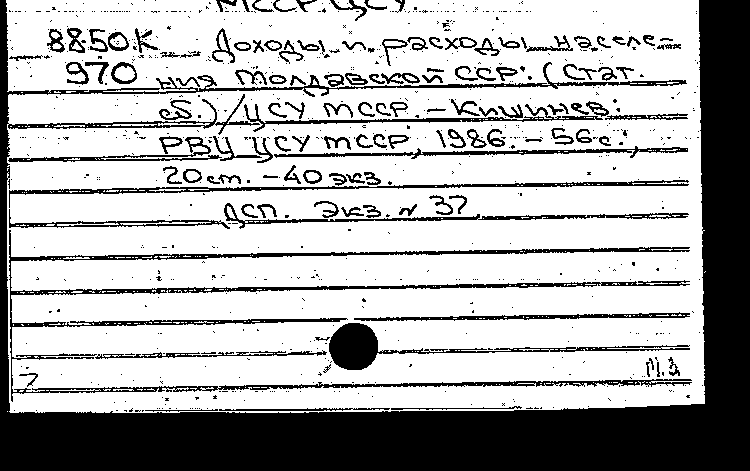 МССР. ЦСУ.
8850К Доходы и расходы населе-
970 ния Молдавской ССР: (Стат.
сб.) / ЦСУ МССР. – Кишинев:
РВЦ ЦСУ МССР, 1986. – 56 с.;
20 см. – 40 экз.
ДСП. Экз. № 37
7